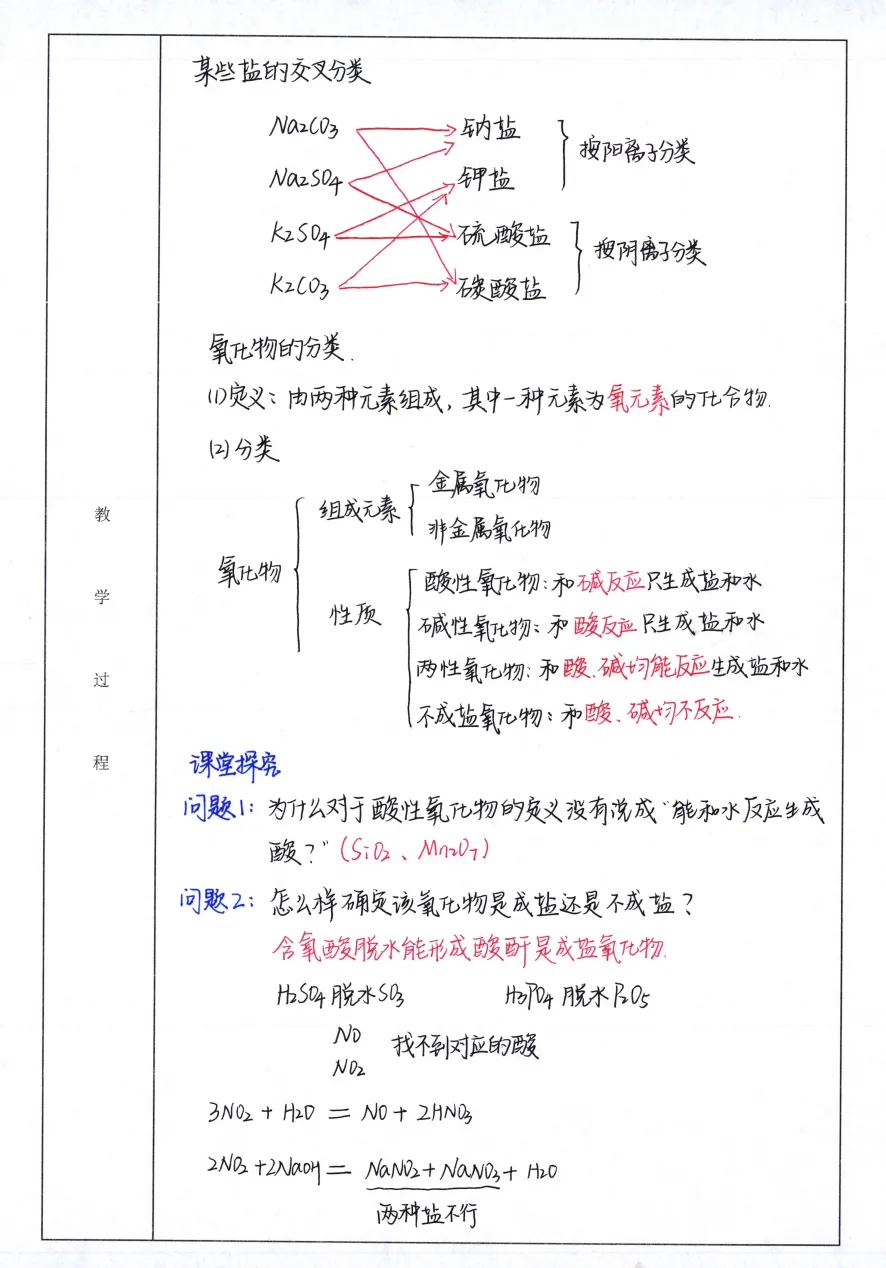 某些盐的交叉分类
Na2CO3 钠盐
按阳离子分类
Na2SO4 钾盐
K2SO4 硫酸盐
按阴离子分类
K2CO3 碳酸盐
氧化物的分类.
(1)定义：由两种元素组成，其中一种元素为氧元素的化合物.
(2)分类
氧化物
组成元素
金属氧化物
非金属氧化物
性质
酸性氧化物：和碱反应只生成盐和水
碱性氧化物：和酸反应只生成盐和水
两性氧化物：和酸、碱均能反应生成盐和水
不成盐氧化物：和酸、碱均不反应.
教
学
过
程
课堂探究
问题1：为什么对于酸性氧化物的定义没有说成“能和水反应生成
酸？”(SiO2、Mn2O7)
问题2：怎么样确定该氧化物是成盐还是不成盐？
含氧酸脱水能形成酸酐是成盐氧化物.
H2SO4脱水SO3 H3PO4脱水P2O5
NO
NO2
找不到对应的酸
3NO2+H2O=NO+2HNO3
2NO2+2NaOH=NaNO2+NaNO3+H2O
两种盐不行